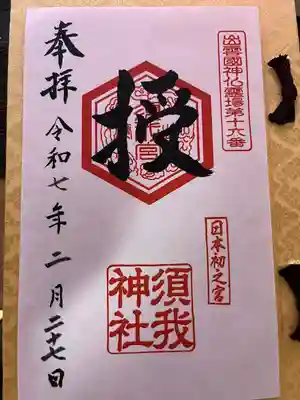 出雲國神仏霊場第十六番
日本初之宮
授
須我
神社
奉拝 令和七年 二月 二十七日